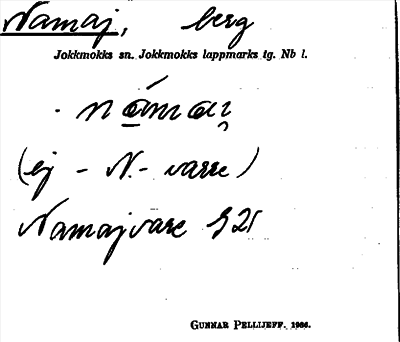 Namaj, berg
Jokkmokks sn. Jokkmokks lappmarks tg. Nb l.
(ej - N.- varre)
Namajvare
GUNNAR PELLIJEFF. 1966.